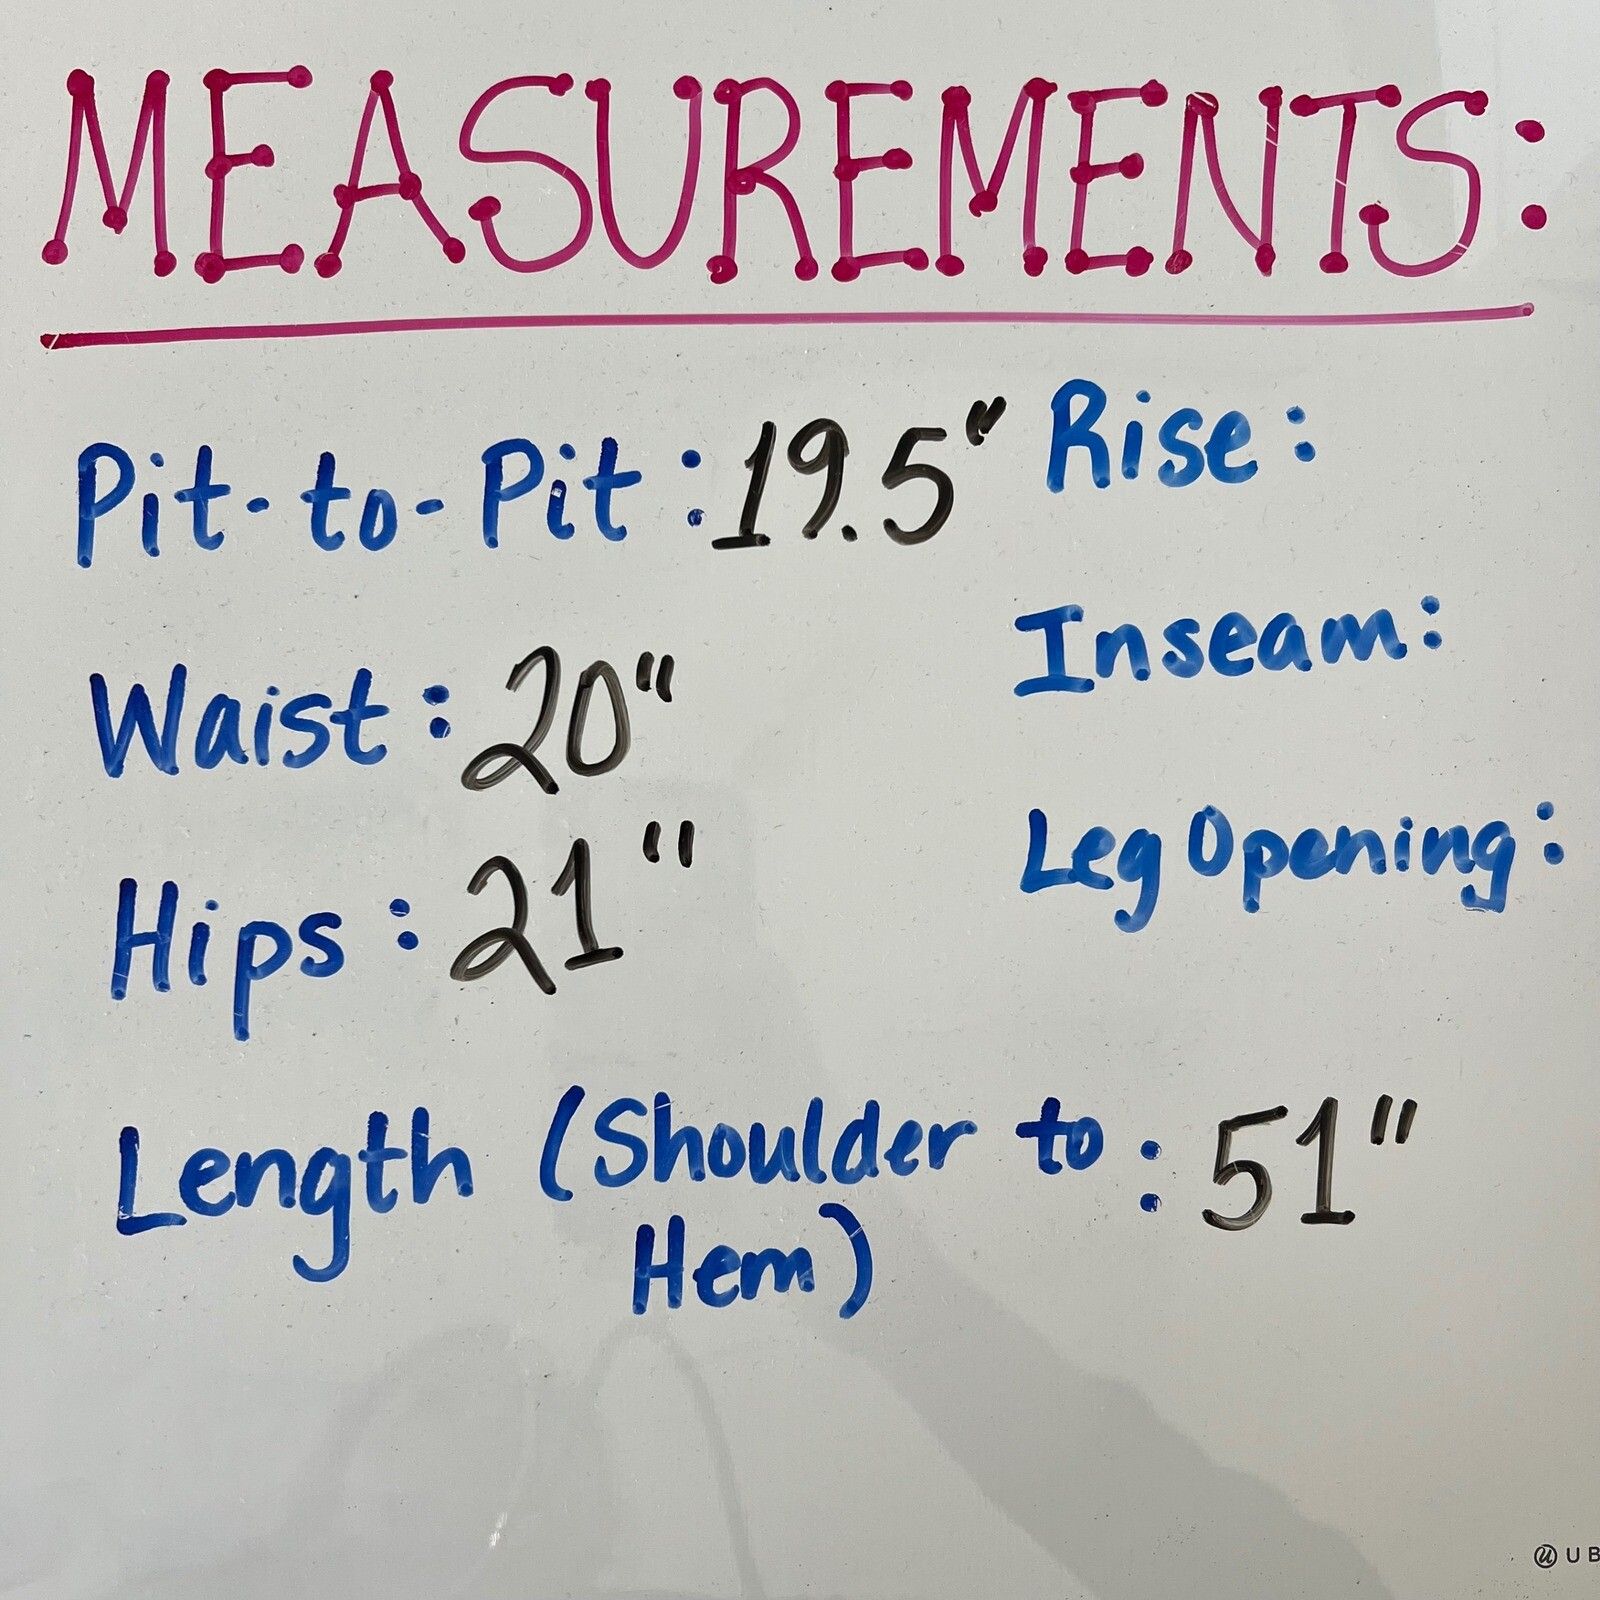 MEASUREMENTS:
Pit-to-Pit: 19.5"
Rise:
Waist: 20"
Inseam:
Hips: 21"
Leg Opening:
Length (Shoulder to: 51"
Hem)
UB